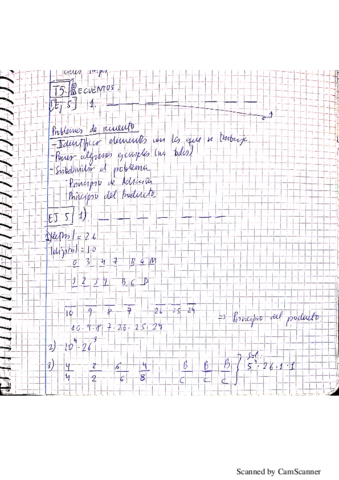 T5. RECUENTOS.
[Ej 5] 1.
Problemas de recuento
- Identificar elementos con los que se trabaja
- Poner algunos ejemplos (no todos)
- Subdividir el problema
Principio de Adición
Principio del Producto
EJ 5 1)
|letras| = 26
|dígitos| = 10
0 3 4 7 B G M
1 2 2 4 B C D
10 9 8 7 26 25 24
10·9·8·7·26·25·24 => Principio del producto
2) 10⁴·26³
3) 4 2 6 4 B B B } Sol
4 2 6 8 C C C 5⁴·26·1·1
Scanned by CamScanner